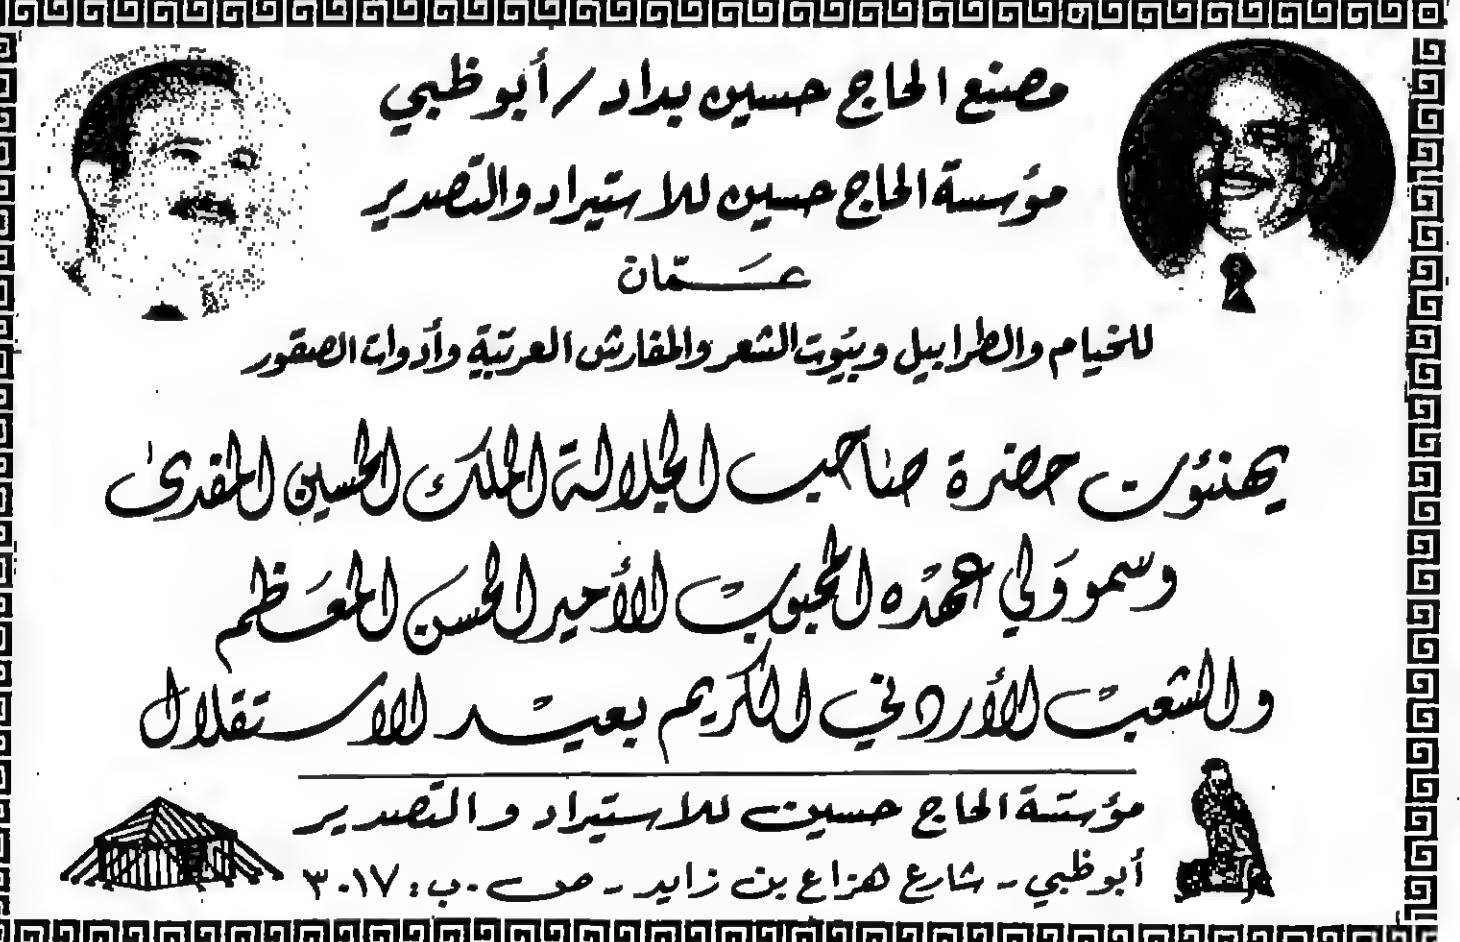 مصنع الحاج حسين بداد / أبوظبي
مؤسسة الحاج حسين للاستيراد والتصدير
عمّان
للخيام والطرابيل وبيوت الشعر والمفارش العربية وأدوات الصقور
يهنئون حضرة صاحب الجلالة الملك الحسين المفدى
وسمو ولي عهده المحبوب الأمير الحسن المعظم
والشعب الأردني الكريم بعيد الاستقلال
مؤسسة الحاج حسين للاستيراد والتصدير
أبوظبي - شارع هزاع بن زايد - ص.ب: ٣٠١٧